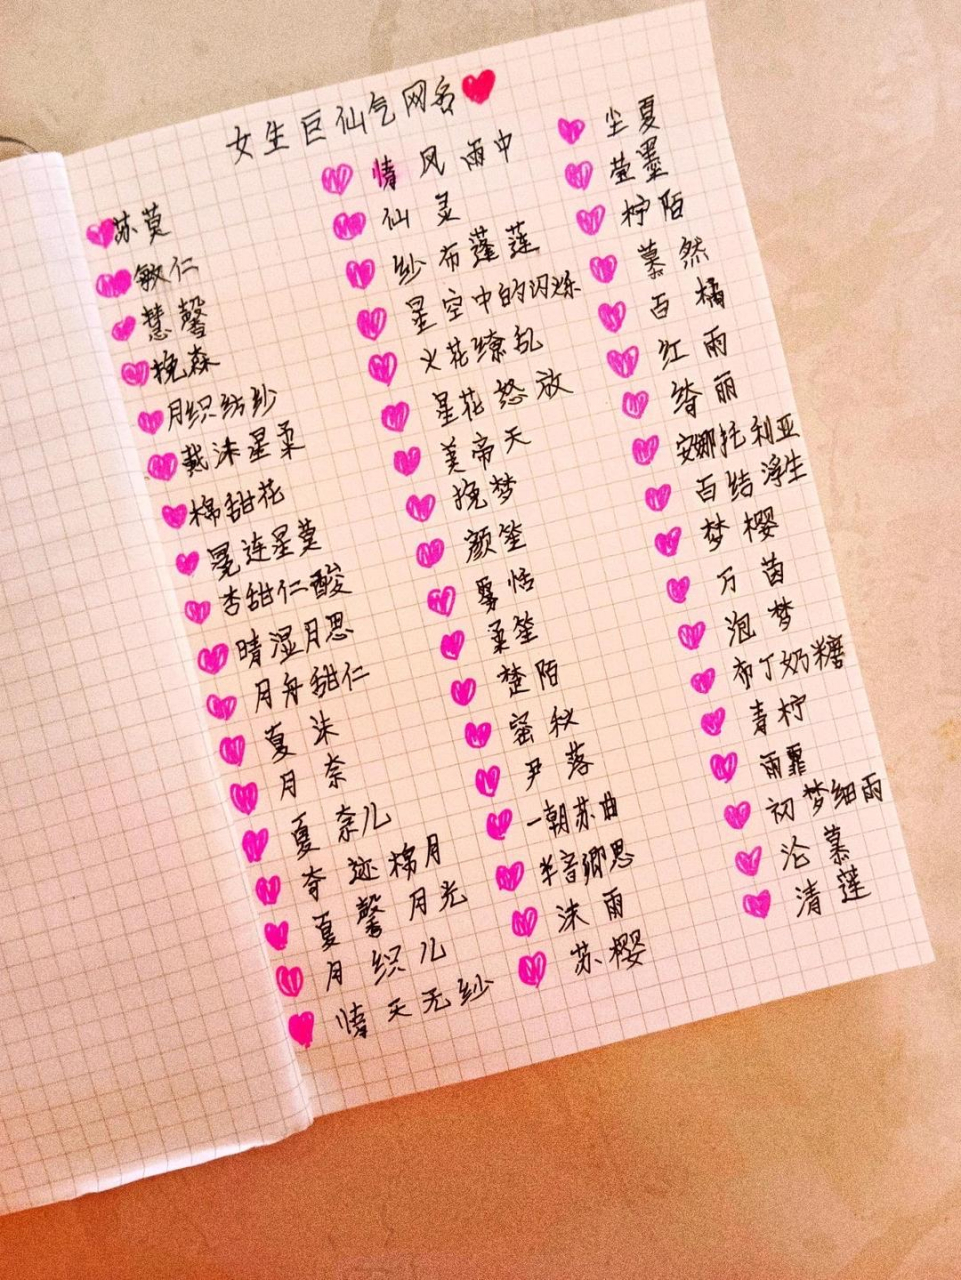 女生巨仙气网名
苏莫
敏仁
慧馨
挽森
月织纺纱
戴沫星柔
棉甜花
冕连星莫
杏甜仁酸
晴湿月思
月舟甜仁
夏沫
月奈
夏奈儿
夺迹棉月
夏馨月光
月织儿
情天无纱
情风雨中
仙灵
纱布蓬莲
星空中的闪烁
火花缭乱
星花怒放
美帝天
挽梦
颜笙
雾恬
柔笙
楚陌
蜜秋
尹落
一朝苏曲
半音卿思
沫雨
苏樱
尘夏
莹墨
柠陌
慕然
百橘
红雨
绺丽
安娜托利亚
百结浮生
梦樱
万茵
泡梦
布丁奶糖
青柠
雨霏
初梦细雨
沦慕
清莲